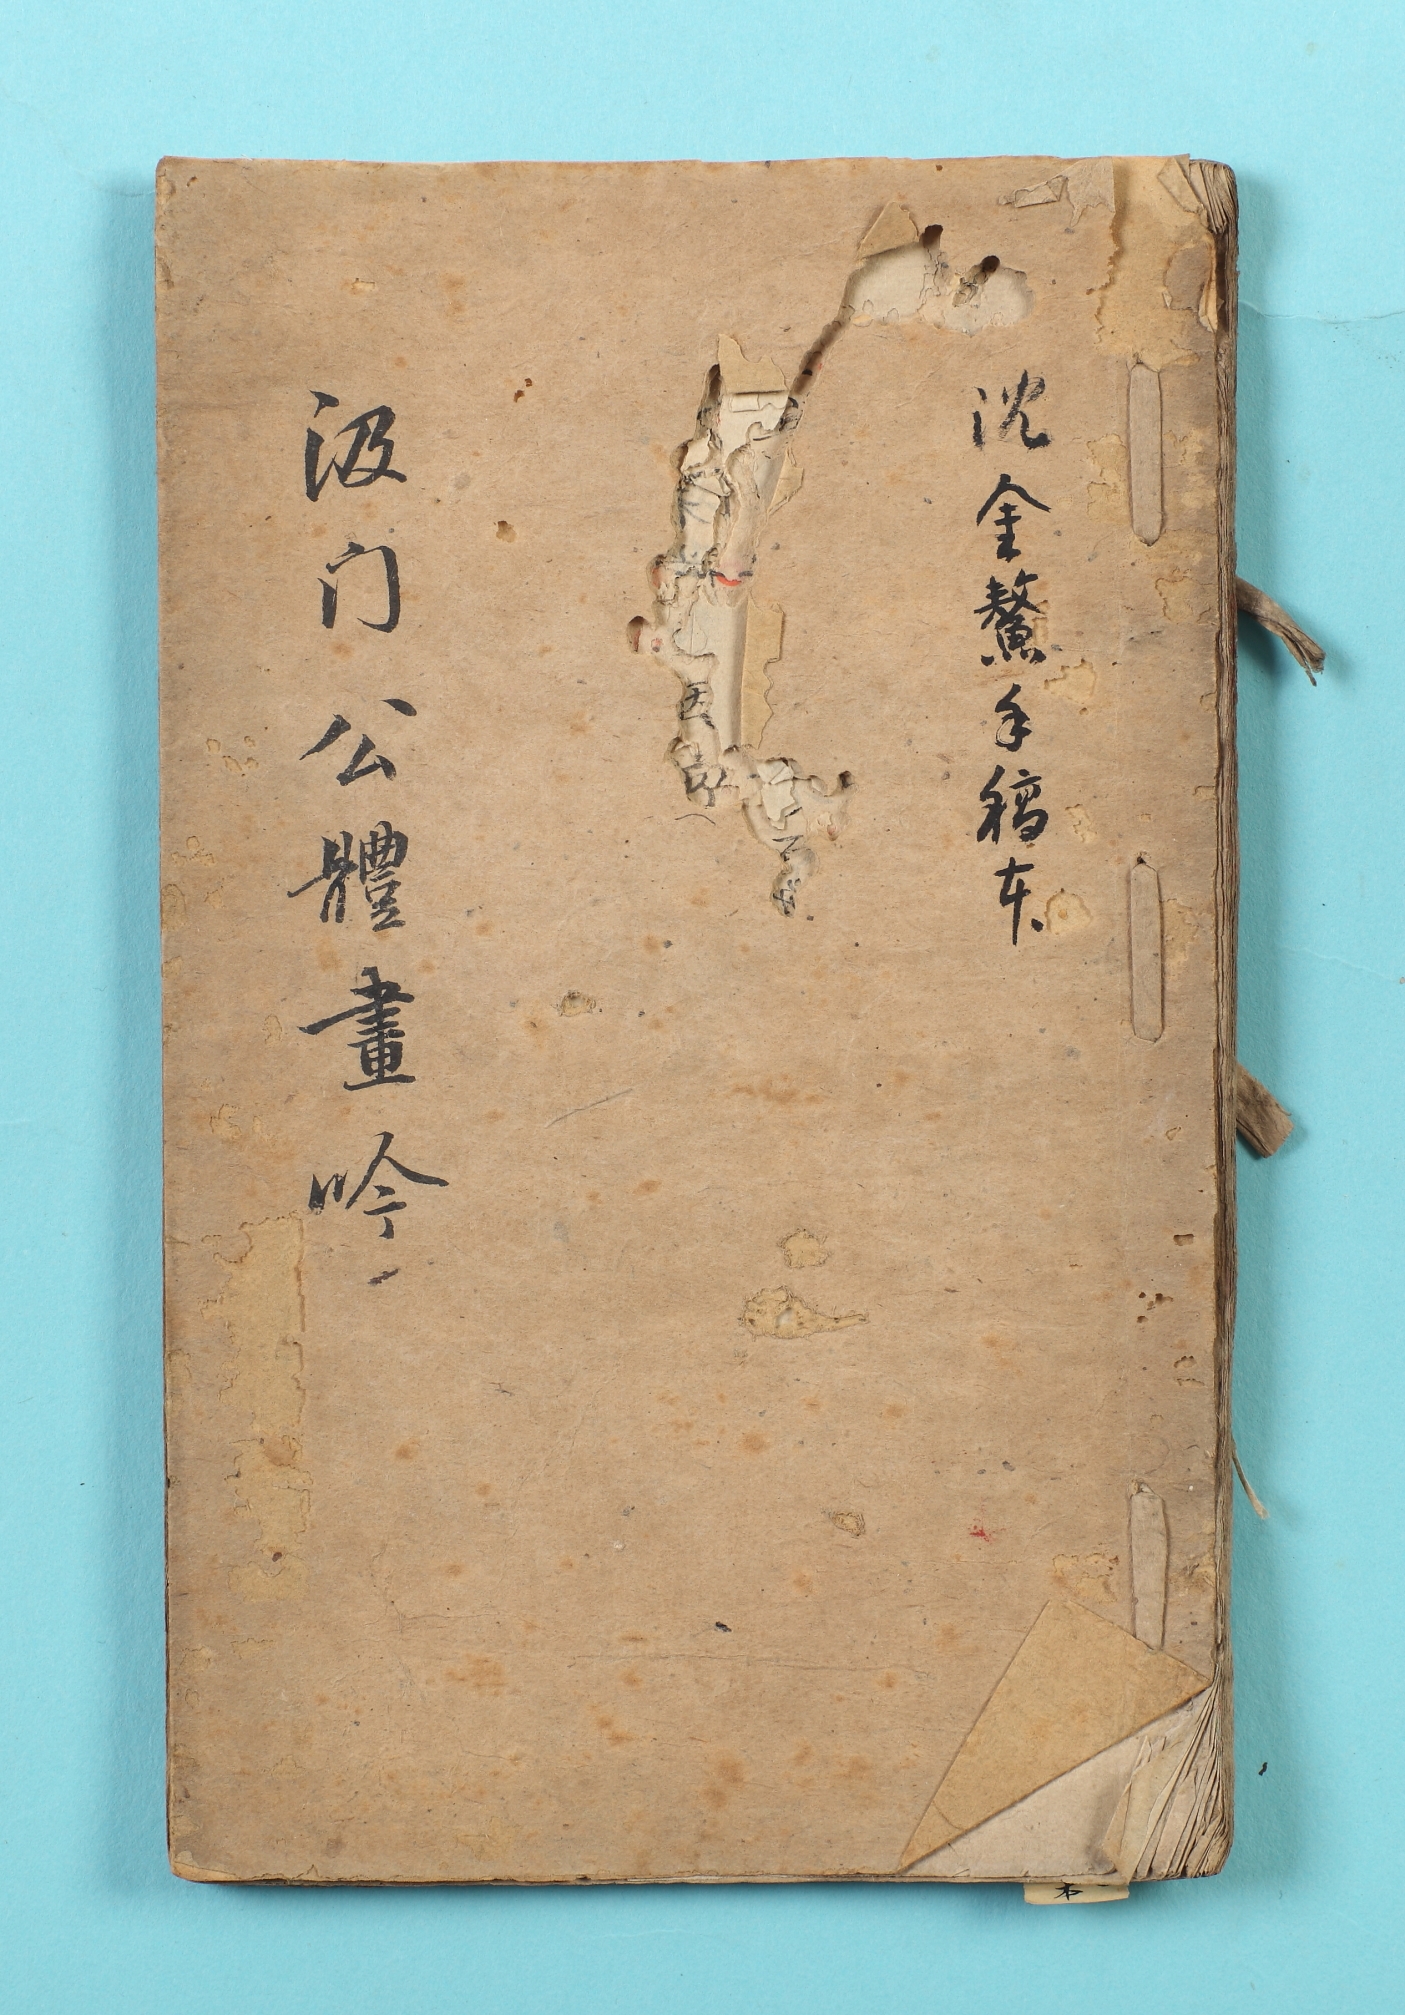 沈金鰲手稿本
汲门公體畫吟
因
本